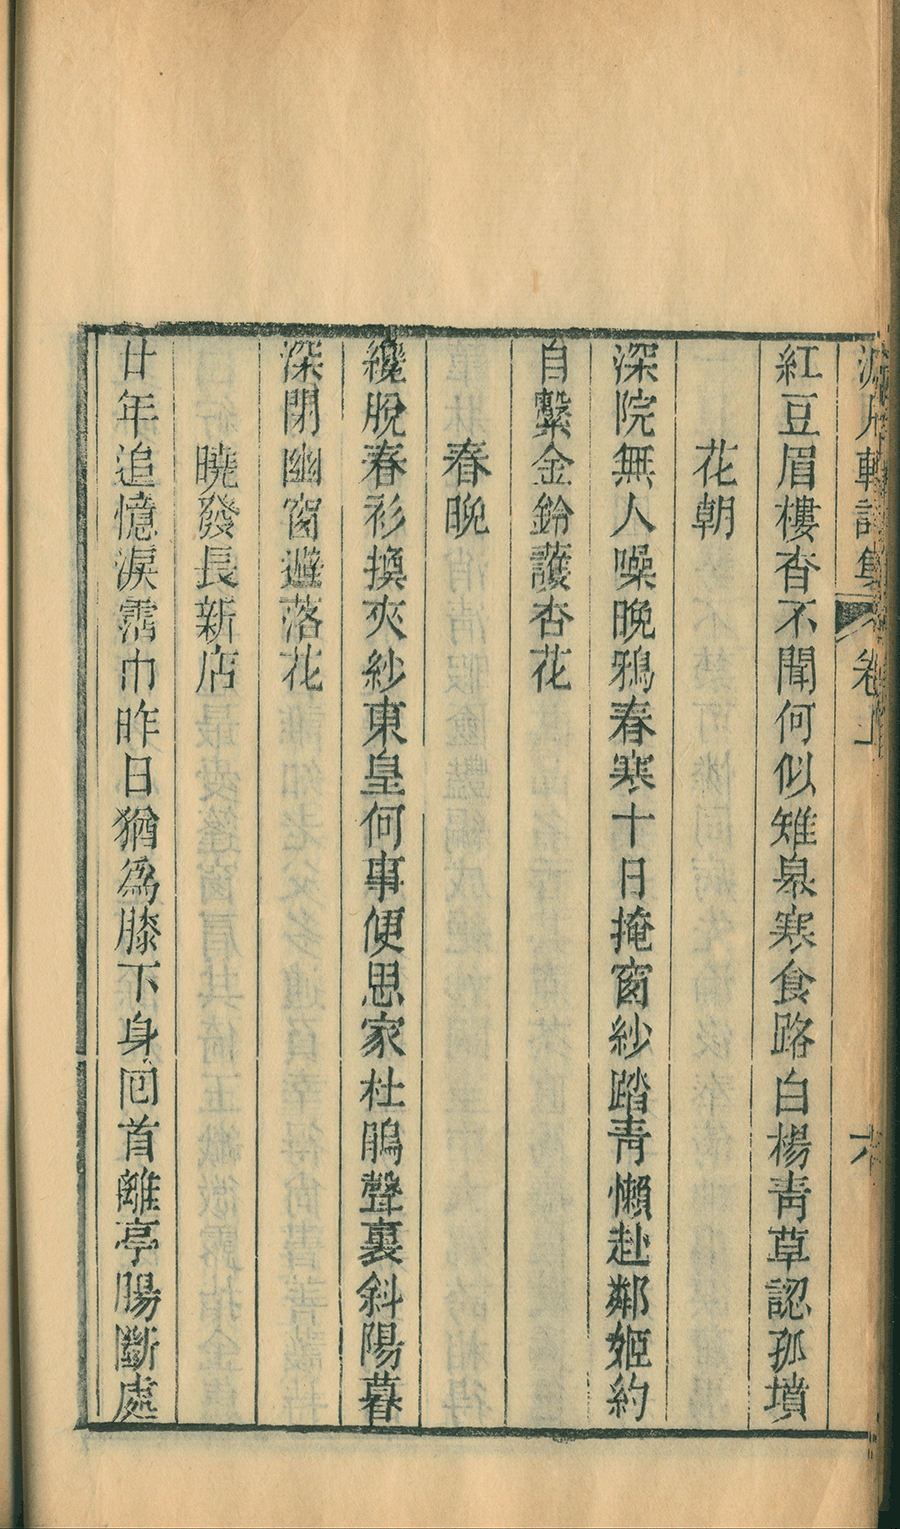 月軒詩集 卷上 六
紅豆眉樓杳不聞何似雉皋寒食路白楊青草認孤墳
花朝
深院無人噪晚鴉春寒十日掩窗紗踏青懶赴鄰姬約
自繫金鈴護杏花
春晚
纔脫春衫換夾紗東皇何事便思家杜鵑聲裏斜陽暮
深閉幽窗避落花
曉發長新店
廿年追憶淚霑巾昨日猶爲膝下身囘首離亭腸斷處